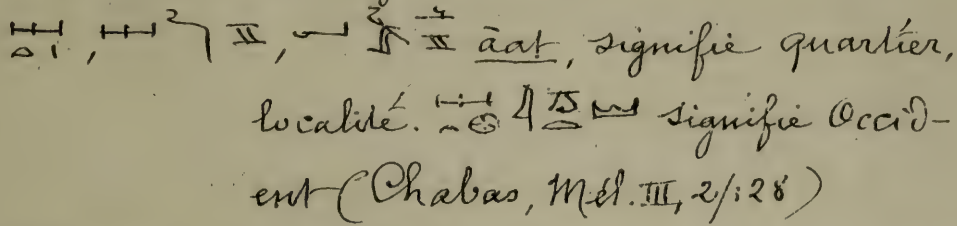 āat, signifie quartier,
localité. signifie Occid-
ent (Chabas, Mél. III, 2/:28)